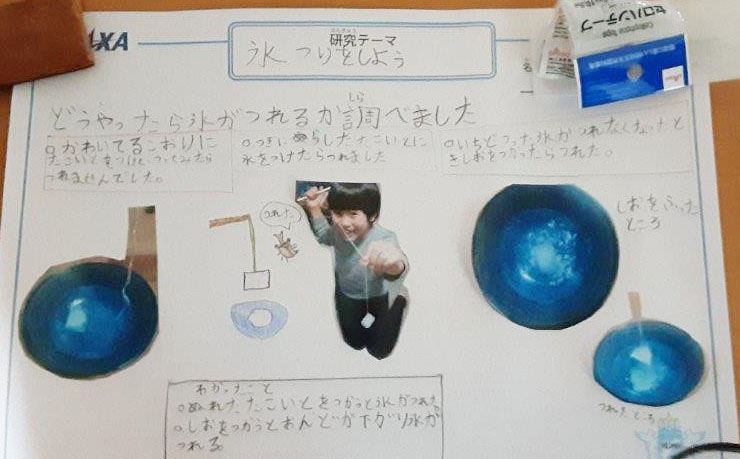 研究テーマ
けんきゅう
氷つりをしよう
XA
セロハンテープ
Cellophane Tape
どうやったら氷がつれるか調べました
しら
○かわいてるこおりに
たこいとをつけてつってみたら
つれませんでした。
○つぎにぬらしたたこいとに
氷をつけたらつれました
○いちどつった氷がつれなくなったと
きしおをつかったらつれた。
つれた
しおをふった
ところ
つれたところ
わかったこと
○ぬれたたこいとをつかうと氷がつれた。
○しおをつかうとおんどが下がり氷が
つれる。